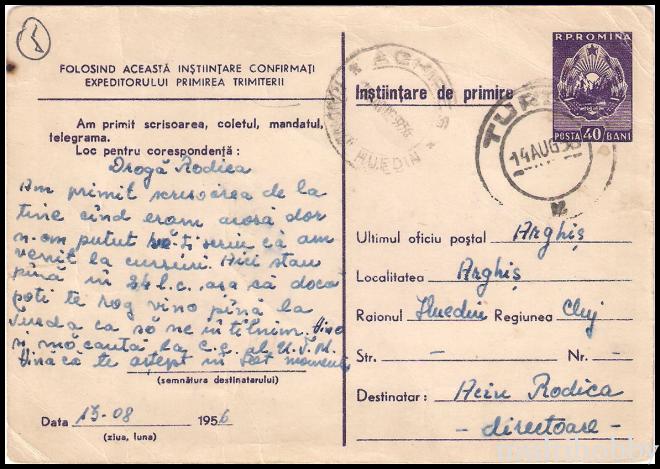 FOLOSIND ACEASTĂ INȘTIINȚARE CONFIRMAȚI
EXPEDITORULUI PRIMIREA TRIMITERII
Am primit scrisoarea, coletul, mandatul,
telegrama.
Loc pentru corespondența :
Dragă Rodica
Am primit scrisoarea de la
tine cînd eram acasă dar
n-am putut să-ți scriu că am
venit la cursuri. Aici stau
pînă în 24 l.c. așa că dacă
poți te rog vino pînă la
Turda ca să ne întîlnim. Vino
și mă caută la C.C. al U.T.M.
Vină că te aștept în
(semnătura destinatarului)
Data 13-08 1956
(ziua, luna)
R.P. ROMINA
POSTA 40 BANI
Inștiințare de primire
AGHIREȘ
HUEDIN
TUR
14 AUG 56
Ultimul oficiu poștal Arghiș
Localitatea Arghiș
Raionul Huedin Regiunea Cluj
Str. - Nr. -
Destinatar : Rodica
- directoare -